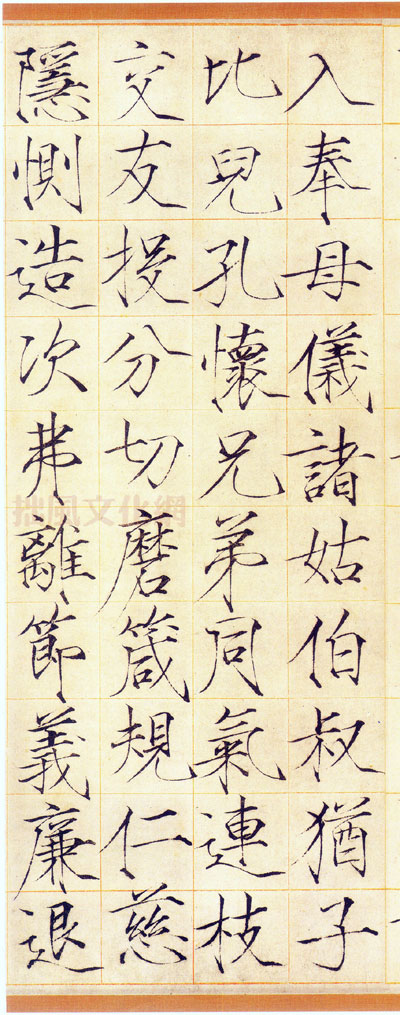 入奉母儀諸姑伯叔猶子
比兒孔懷兄弟同氣連枝
交友投分切磨箴規仁慈
隱惻造次弗離節義廉退
拙風文化網